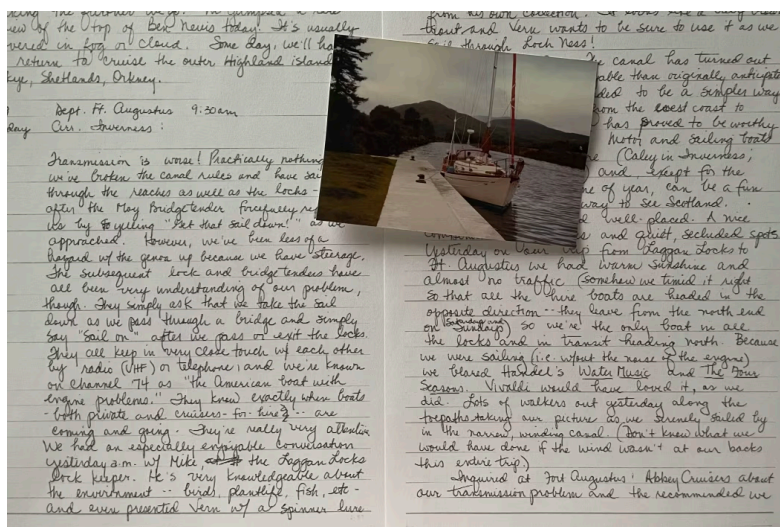 ew of the top of Ben Nevis today. It's usually
vered in fog or cloud. Some day, we'll ha
return to cruise the outer Highland island
kye, Shetlands, Orkney.
Dept. Ft. Augustus 9:30am
day Arr. Inverness:
Transmission is worse! Practically nothing
we've broken the canal rules and have sai
through the reaches as well as the locks -
after the Moy Bridgetender forcefully re
us by yelling "Get that sail down!" as we
approached. However, we've been less of a
hazard w/ the genoa up because we have steerage.
The subsequent lock and bridge tenders have
all been very understanding of our problem,
though. They simply ask that we take the sail
down as we pass through a bridge and simply
say "sail on" after we pass or exit the locks.
They all keep in very close touch w/ each other
by radio (VHF) or telephone, and we're known
on channel 74 as "the American boat with
engine problems." They know exactly when boats
- both private and cruisers-for-hire - are
coming and going. They're really very attentive
We had an especially enjoyable conversation
yesterday a.m. w/ Mike, the Laggan Locks
lock keeper. He's very knowledgeable about
the environment -- birds, plantlife, fish, etc -
and even presented Vern w/ a spinner lure
from his own collection.
trout and Vern wants to be sure to use it as we
sail through Loch Ness!
The canal has turned out
able than originally anticipate
ded to be a simpler way
from the west coast to
has proved to be worthy
Motor and sailing boats
re (Caley in Inverness,
) and, except for the
me of year, can be a fun
way to see Scotland.
d well-placed. A nice
s and quiet, secluded spots
Yesterday on our trip from Laggan Locks to
Ft. Augustus we had warm sunshine and
almost no traffic (somehow we timed it right
so that all the hire boats are headed in the
opposite direction -- they leave from the north end
on Saturday and Sundays) so we're the only boat in all
the locks and in transit heading north. Because
we were sailing (i.e. w/out the noise of the engine)
we blared Handel's Water Music and The Four
Seasons. Vivaldi would have loved it, as we
did. Lots of walkers out yesterday along the
towpaths taking our picture as we serenely sailed by
in the narrow, winding canal. (Don't know what we
would have done if the wind wasn't at our backs
this entire trip.)
Inquired at Fort Augustus' Abbey Cruisers about
our transmission problem and the recommended we